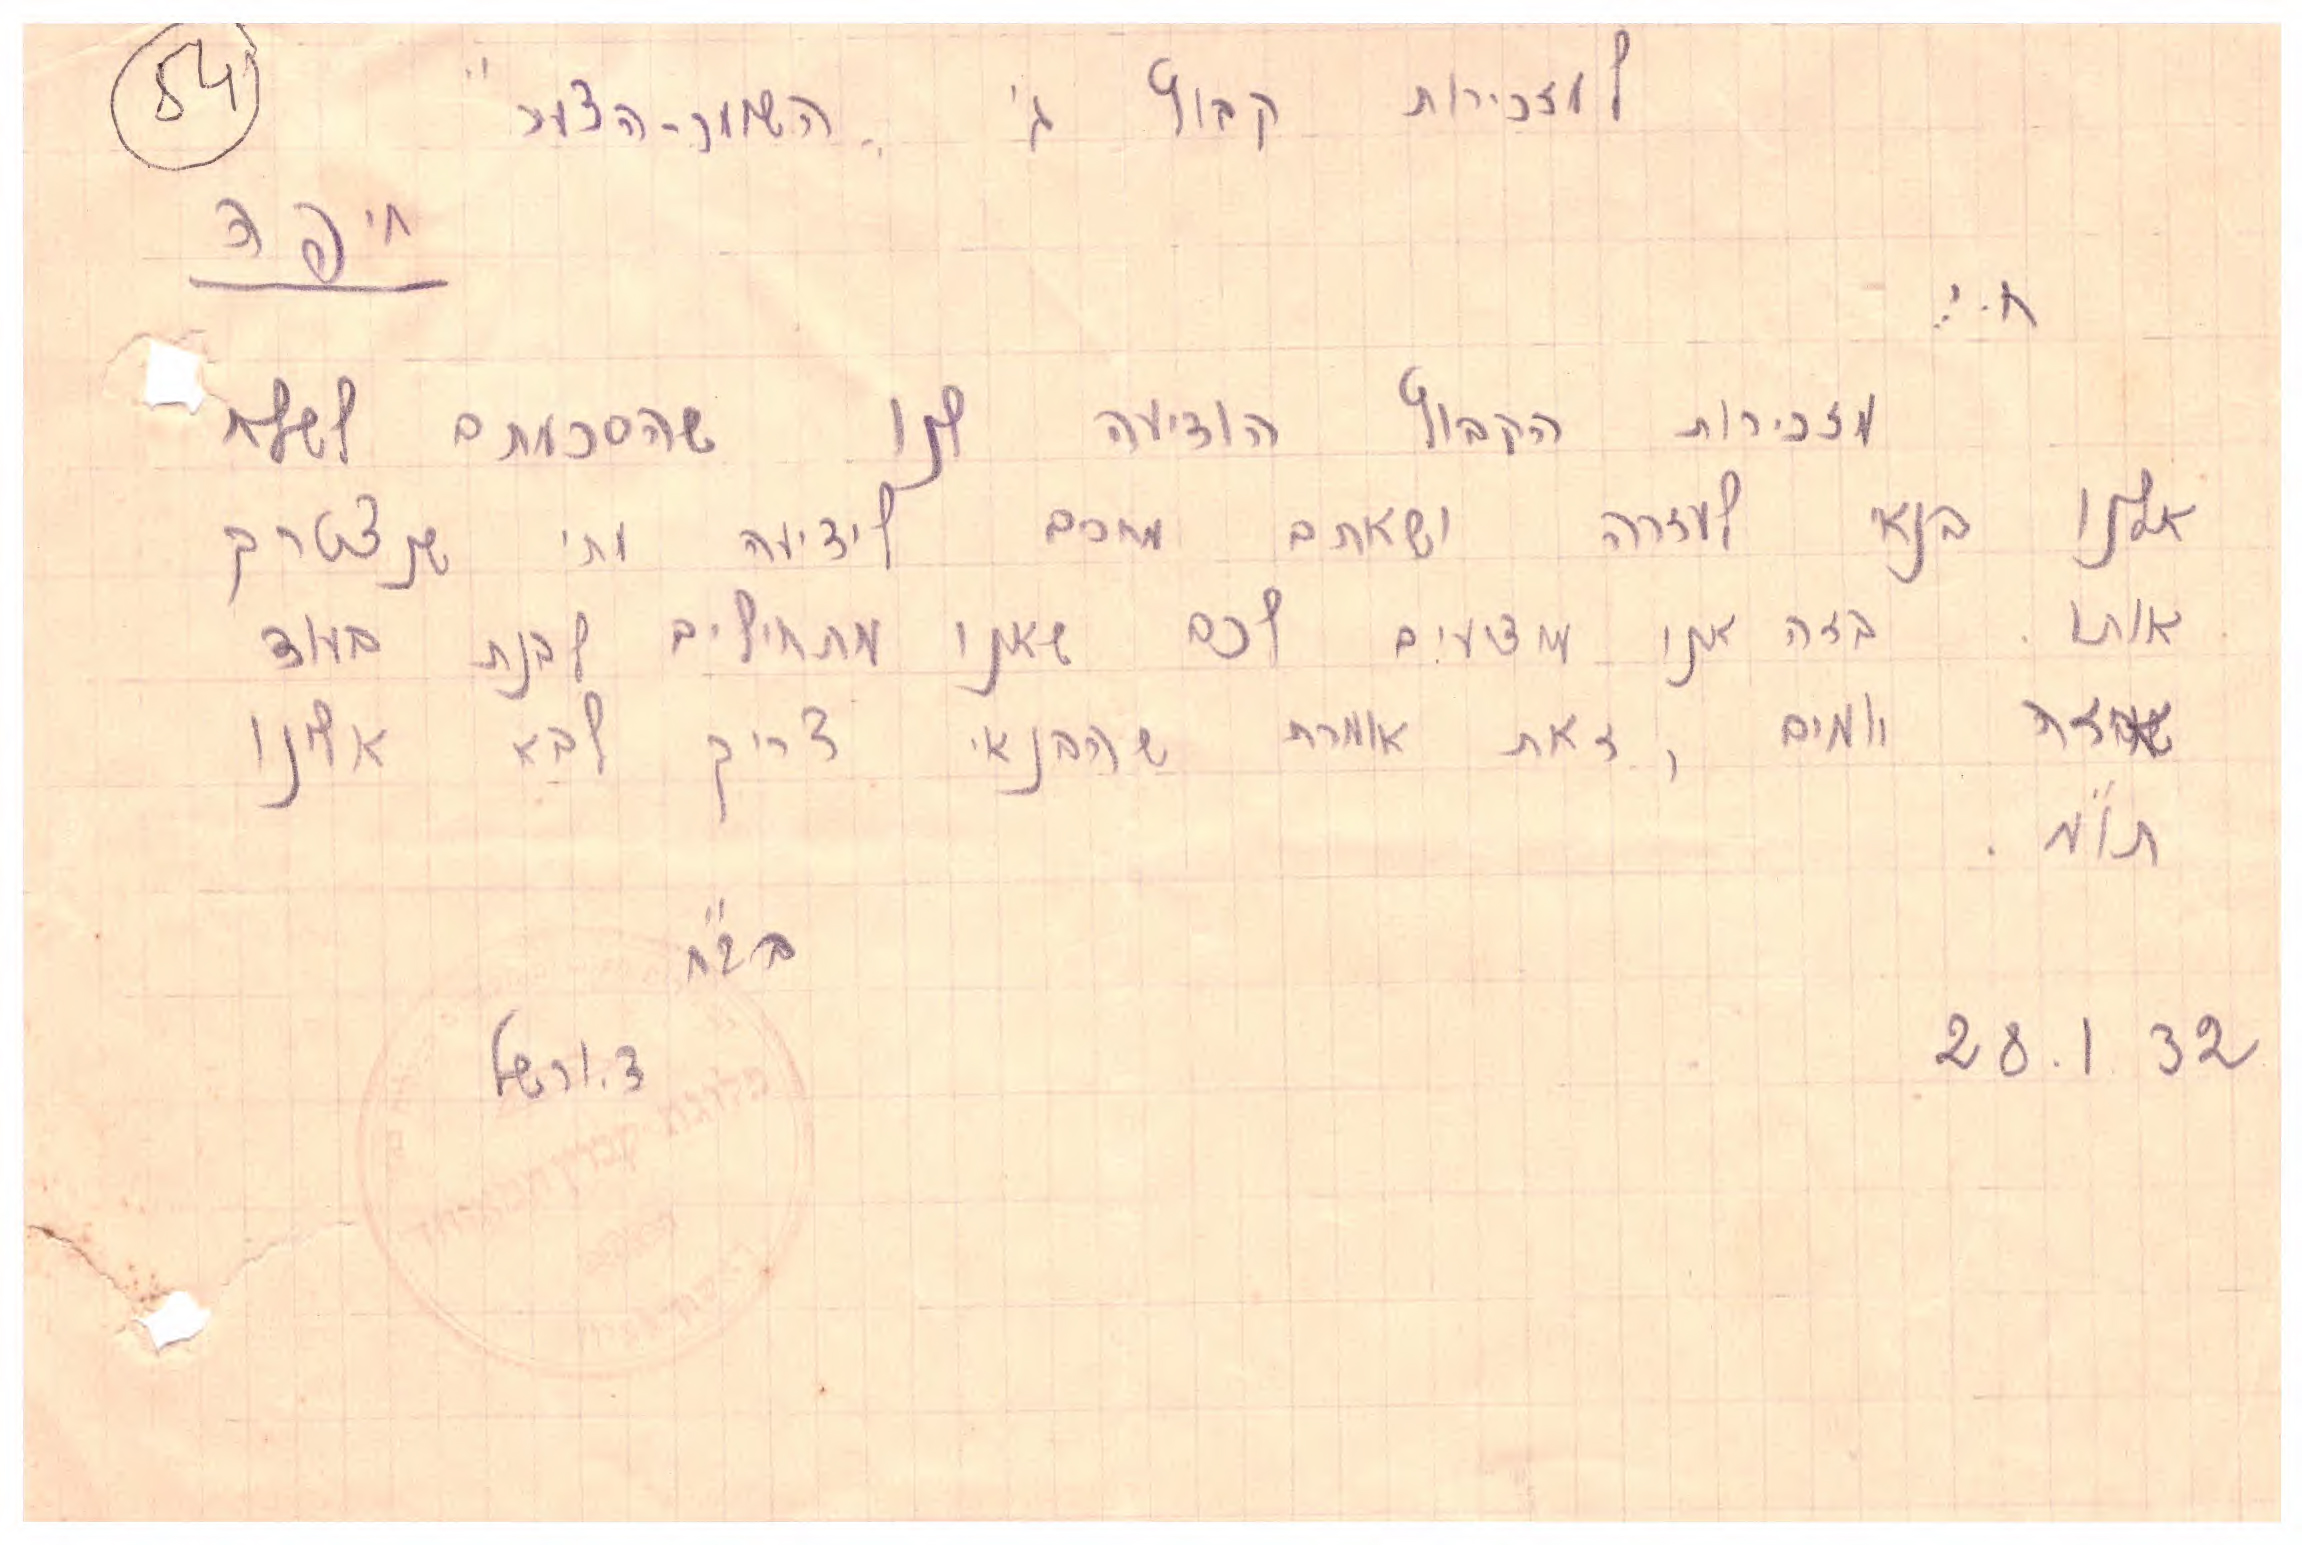 54
למזכירות קבוץ ג' "השומר-הצעיר"
חיפה
ח. י:
מזכירות הקבוץ הודיעה לנו שהסכמתם לשלח
אלנו בנא לעזרה ושאתם מחכם לידיעה מתי שנצטרק
אותו. בזה אנו מודעים לכם שאנו מתחילים לבנת בעוד
יומים, זאת אומרת שהבנאי צריק לבא אלנו
תו"מ.
בב"ח
28.1 32